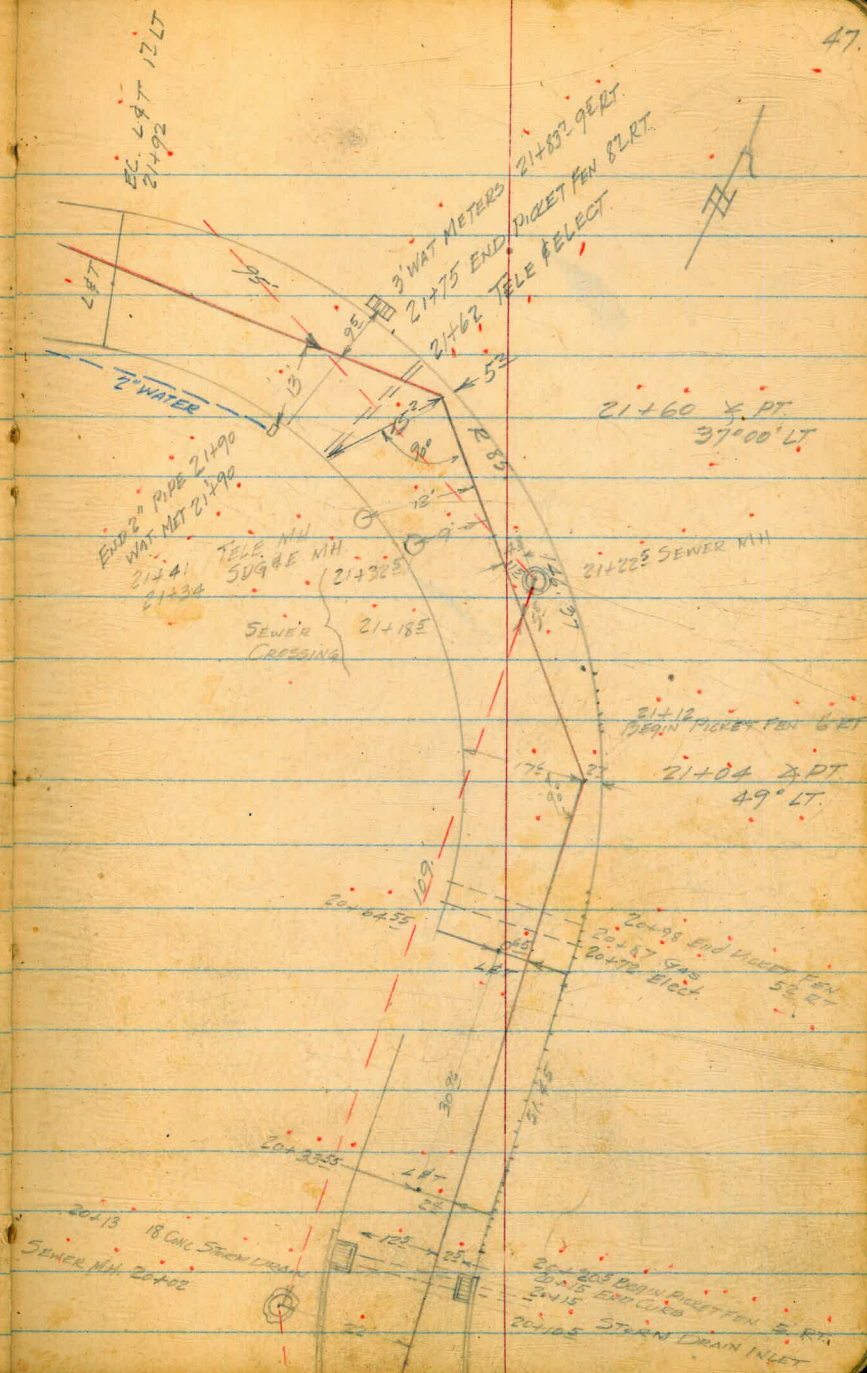 47.
EC. L&T 12 LT
21+92
3' WAT METERS 21+83² 9⁵ RT.
21+75 END PICKET FEN 8² RT.
21+62 TELE & ELECT
L&T
95'
9⁵
13'
5³
2" WATER
15²
90°
R 85
21+60 ∠ PT.
37°00' LT
END 2" PIPE 21+90
WAT. MET 21+90
13'
9'
21+41 TELE MH
21+34 SDG&E MH
21+32⁵
21+22⁵ SEWER MH
SEWER
CROSSING
21+18⁵
21+12
BEGIN PICKET FEN 6 RT
17⁵
90°
21+04 ∠ PT.
49° LT.
109.'
20+64.55
20+98 END PICKET FEN
5² RT
20+87 GAS
20+72 Elect.
L&T
30.96
51.45
20+33⁵⁵
L&T
20+13 18 CONC STORM DRAIN
SEWER MH. 20+02
12⁵
2⁵
20+20⁵ BEGIN PICKET FEN 5' RT.
20+15 END CURB
20+15
20+10⁵ STORM DRAIN INLET